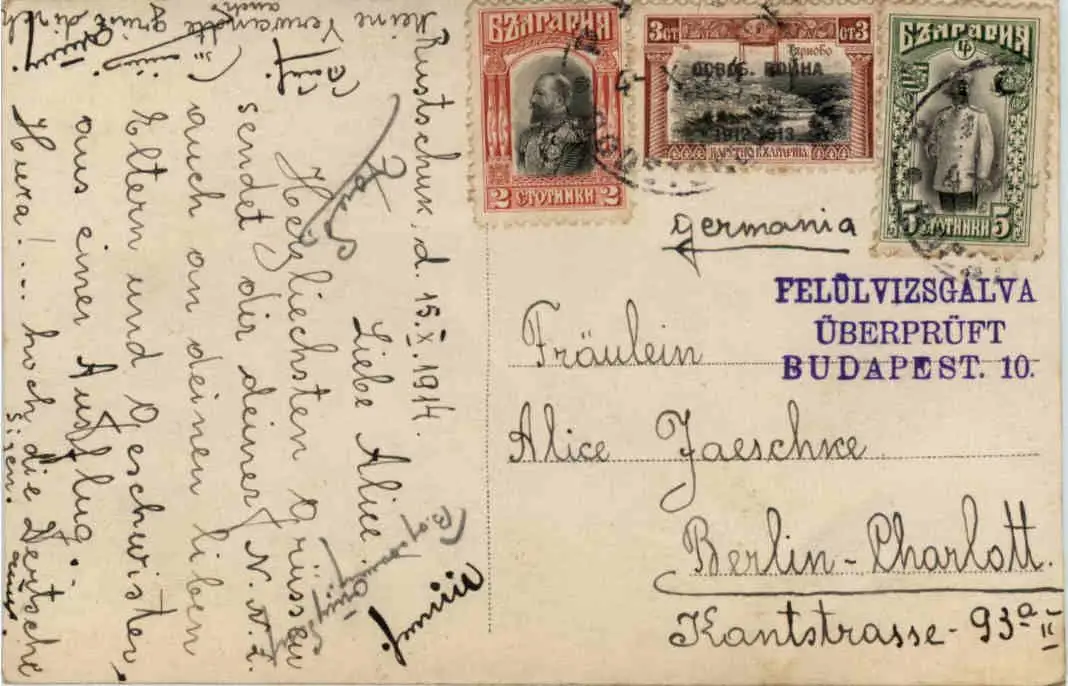 БЪЛГАРИЯ
2 СТОТИНКИ 2
3 СТ СТ 3
Търново
ОСВОБ. ВОЙНА
1912-1913
ЦАРСТВО БЪЛГАРИЯ
БЪЛГАРИЯ
5 СТОТИНКИ 5
Germania
FELÜLVIZSGÁLVA
ÜBERPRÜFT
BUDAPEST. 10.
Fräulein
Alice Jaeschke
Berlin-Charlott.
Kantstrasse-93a II
Rustschuk, d. 15.X.1914.
Liebe Alice!
Herzliechsten Grüssen
sendet dir deiner N. N. Z.
auch an deinen lieben
Eltern und Geschwister,
aus einer Ausflug.
Hura!... hoch die Deutsche
siegen.
meine Verwandte
auch